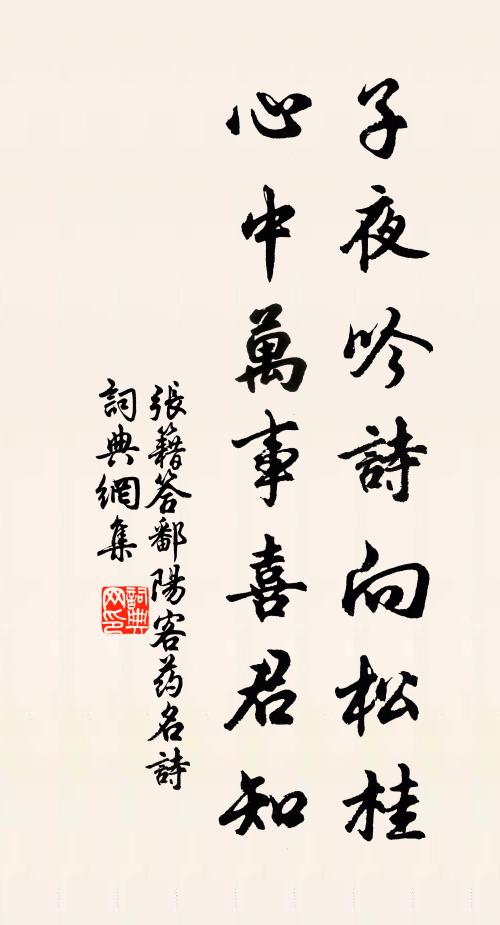 子夜吟詩向松桂
心中萬事喜君知
張籍答鄱陽客药名詩
詞典網集
詞典网印